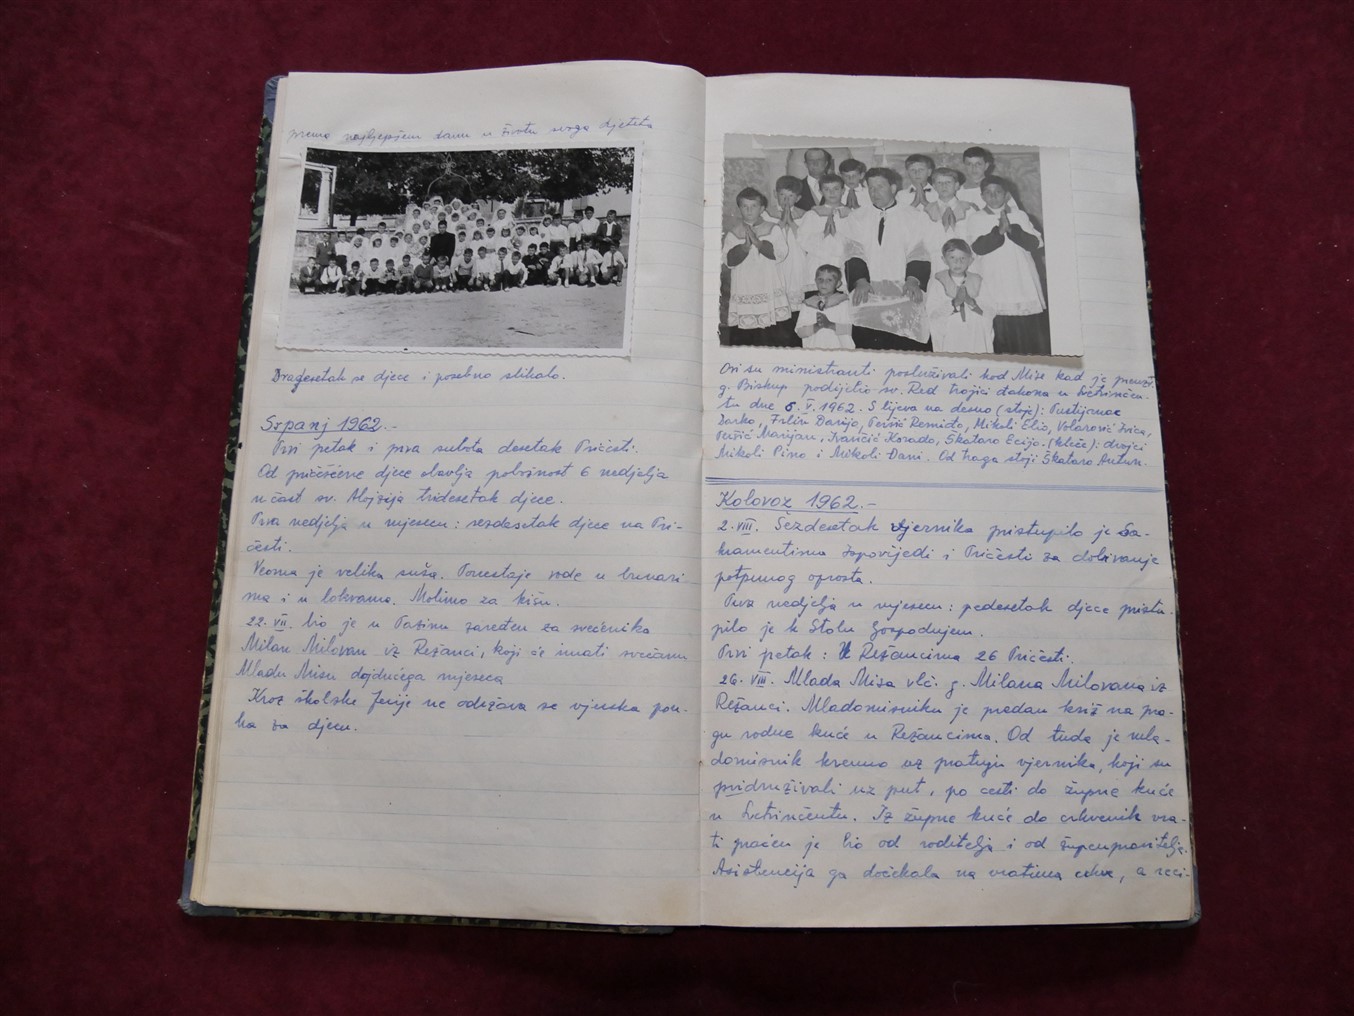 prema najljepšem danu u životu svoga djeteta
Dvadesetak se djece i posebno slikalo.
Srpanj 1962.-
Prvi petak i prva subota desetak Pričesti.
Od pričešćene djece obavlja pobožnost 6 nedjelja
u čast sv. Alojzija tridesetak djece.
Prva nedjelja u mjesecu: sezdesetak djece na Pri-
česti.
Veoma je velika suša. Ponestaje vode u bunari
ma i u lokvama. Molimo za kišu.
22. VII. bio je u Pazinu zaređen za svećenika
Milan Milovan iz Režanci, koji će imati svečanu
Mladu Misu dojdućega mjeseca
Kroz školske ferije ne održava se vjerska pou-
ka za djecu.
Ovi su ministranti posluživali kod Mise kad je preuzv.
g. Biskup podijelio sv. Red trojici đakona u Svetvinčen-
tu dne 6. V. 1962. S lijeva na desno (stoje): Pustijanac
Darko, Ferlin Darijo, Peršić Remido, Mikoli Elio, Volarović Ivica,
Peršić Marijan, Ivančić Korado, Škataro Ecijo. (kleče): dvojci
Mikoli Pino i Mikoli Dani. Od traga stoji Škataro Antun.
Kolovoz 1962.-
2. VIII. Šezdesetak vjernika pristupilo je Sa-
kramentima Ispovijedi i Pričesti za dobivanje
potpunog oprosta.
Prva nedjelja u mjesecu: pedesetak djece pristu-
pilo je k Stolu Gospodnjem.
Prvi petak: U Režancima 26 Pričesti.
26. VIII. Mlada Misa vlč. g. Milana Milovana iz
Režanci. Mladomisniku je predan križ na pra-
gu rodne kuće u Režancima. Od tuda je mla-
domisnik krenuo uz pratnju vjernika, koji su
pridruživali uz put, po cesti do župne kuće
u Svetvinčentu. Iz župne kuće do crkvenih vra-
ti praćen je bio od roditelja i od župnoupravitelja.
Asistencija ga dočekala na vratima crkve, a reci-